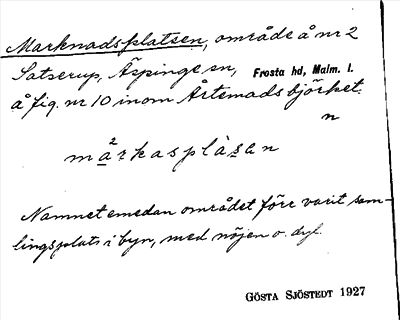 Marknadsplatsen, område å nr 2
Satserup, Äspinge sn, Frosta hd, Malm. l.
å fig. nr 10 inom Årtemadsbjörket.
n
mårkasplàsan
Namnet emedan området förr varit sam-
lingsplats i byn, med nöjen o. dyl.
GÖSTA SJÖSTEDT 1927